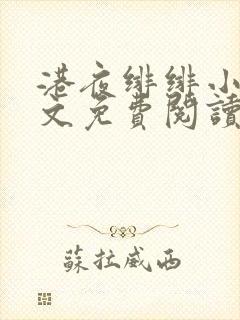 港夜绯绯小
文免費閱讀
蘇拉威西